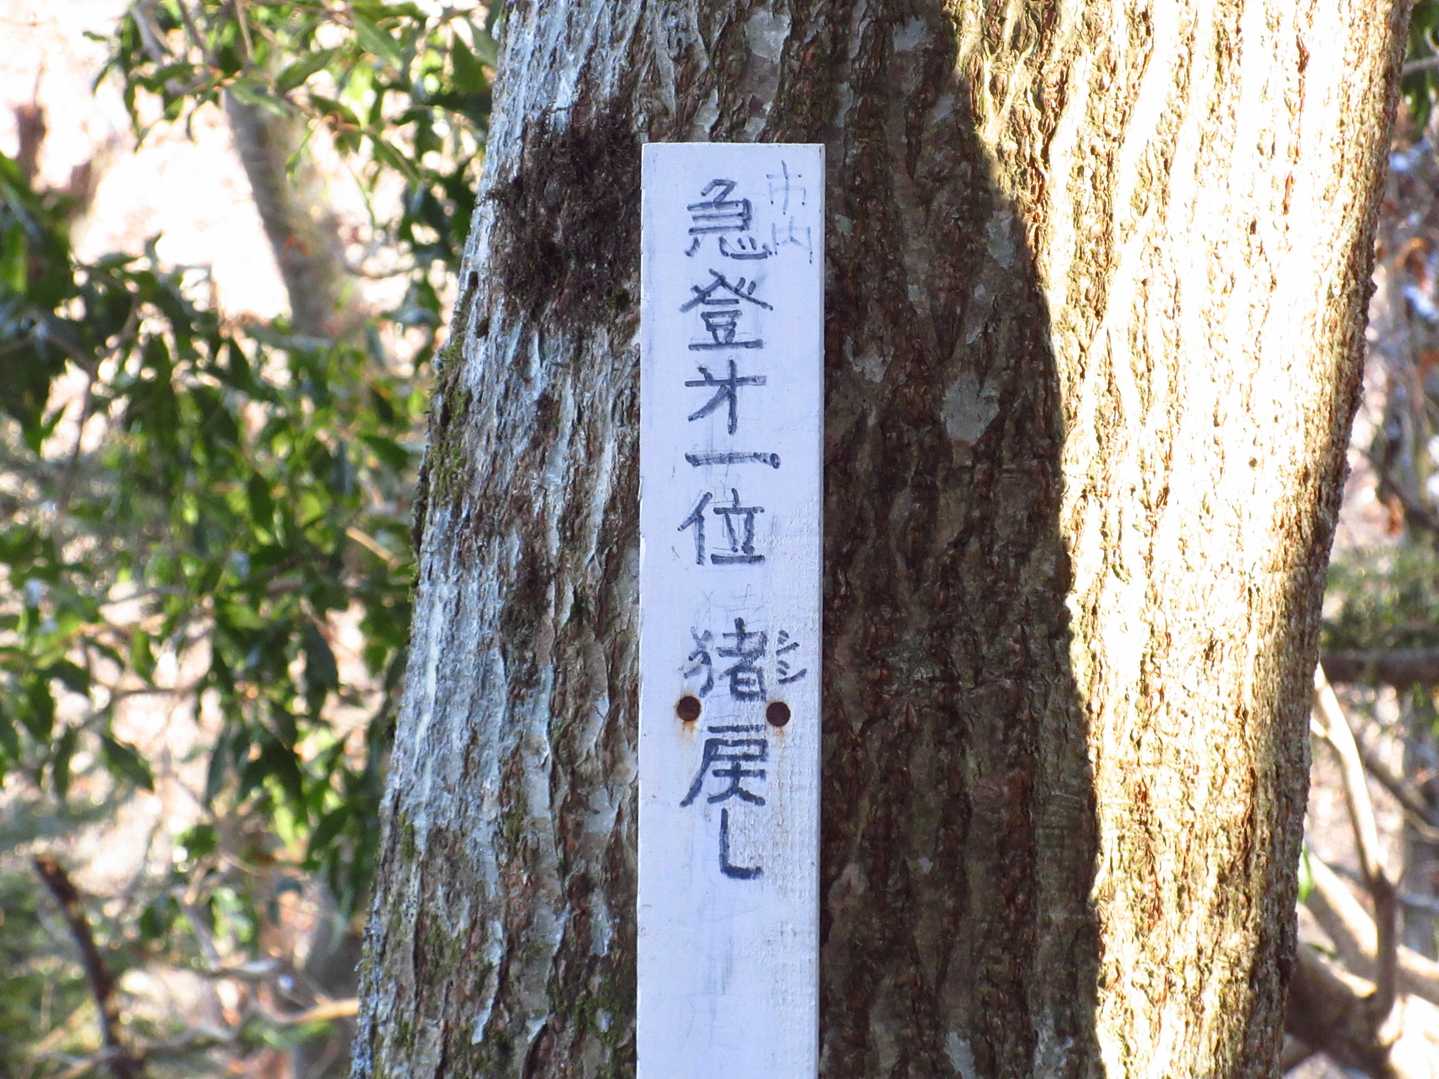 市内
急登才一位 猪戻し
シシ